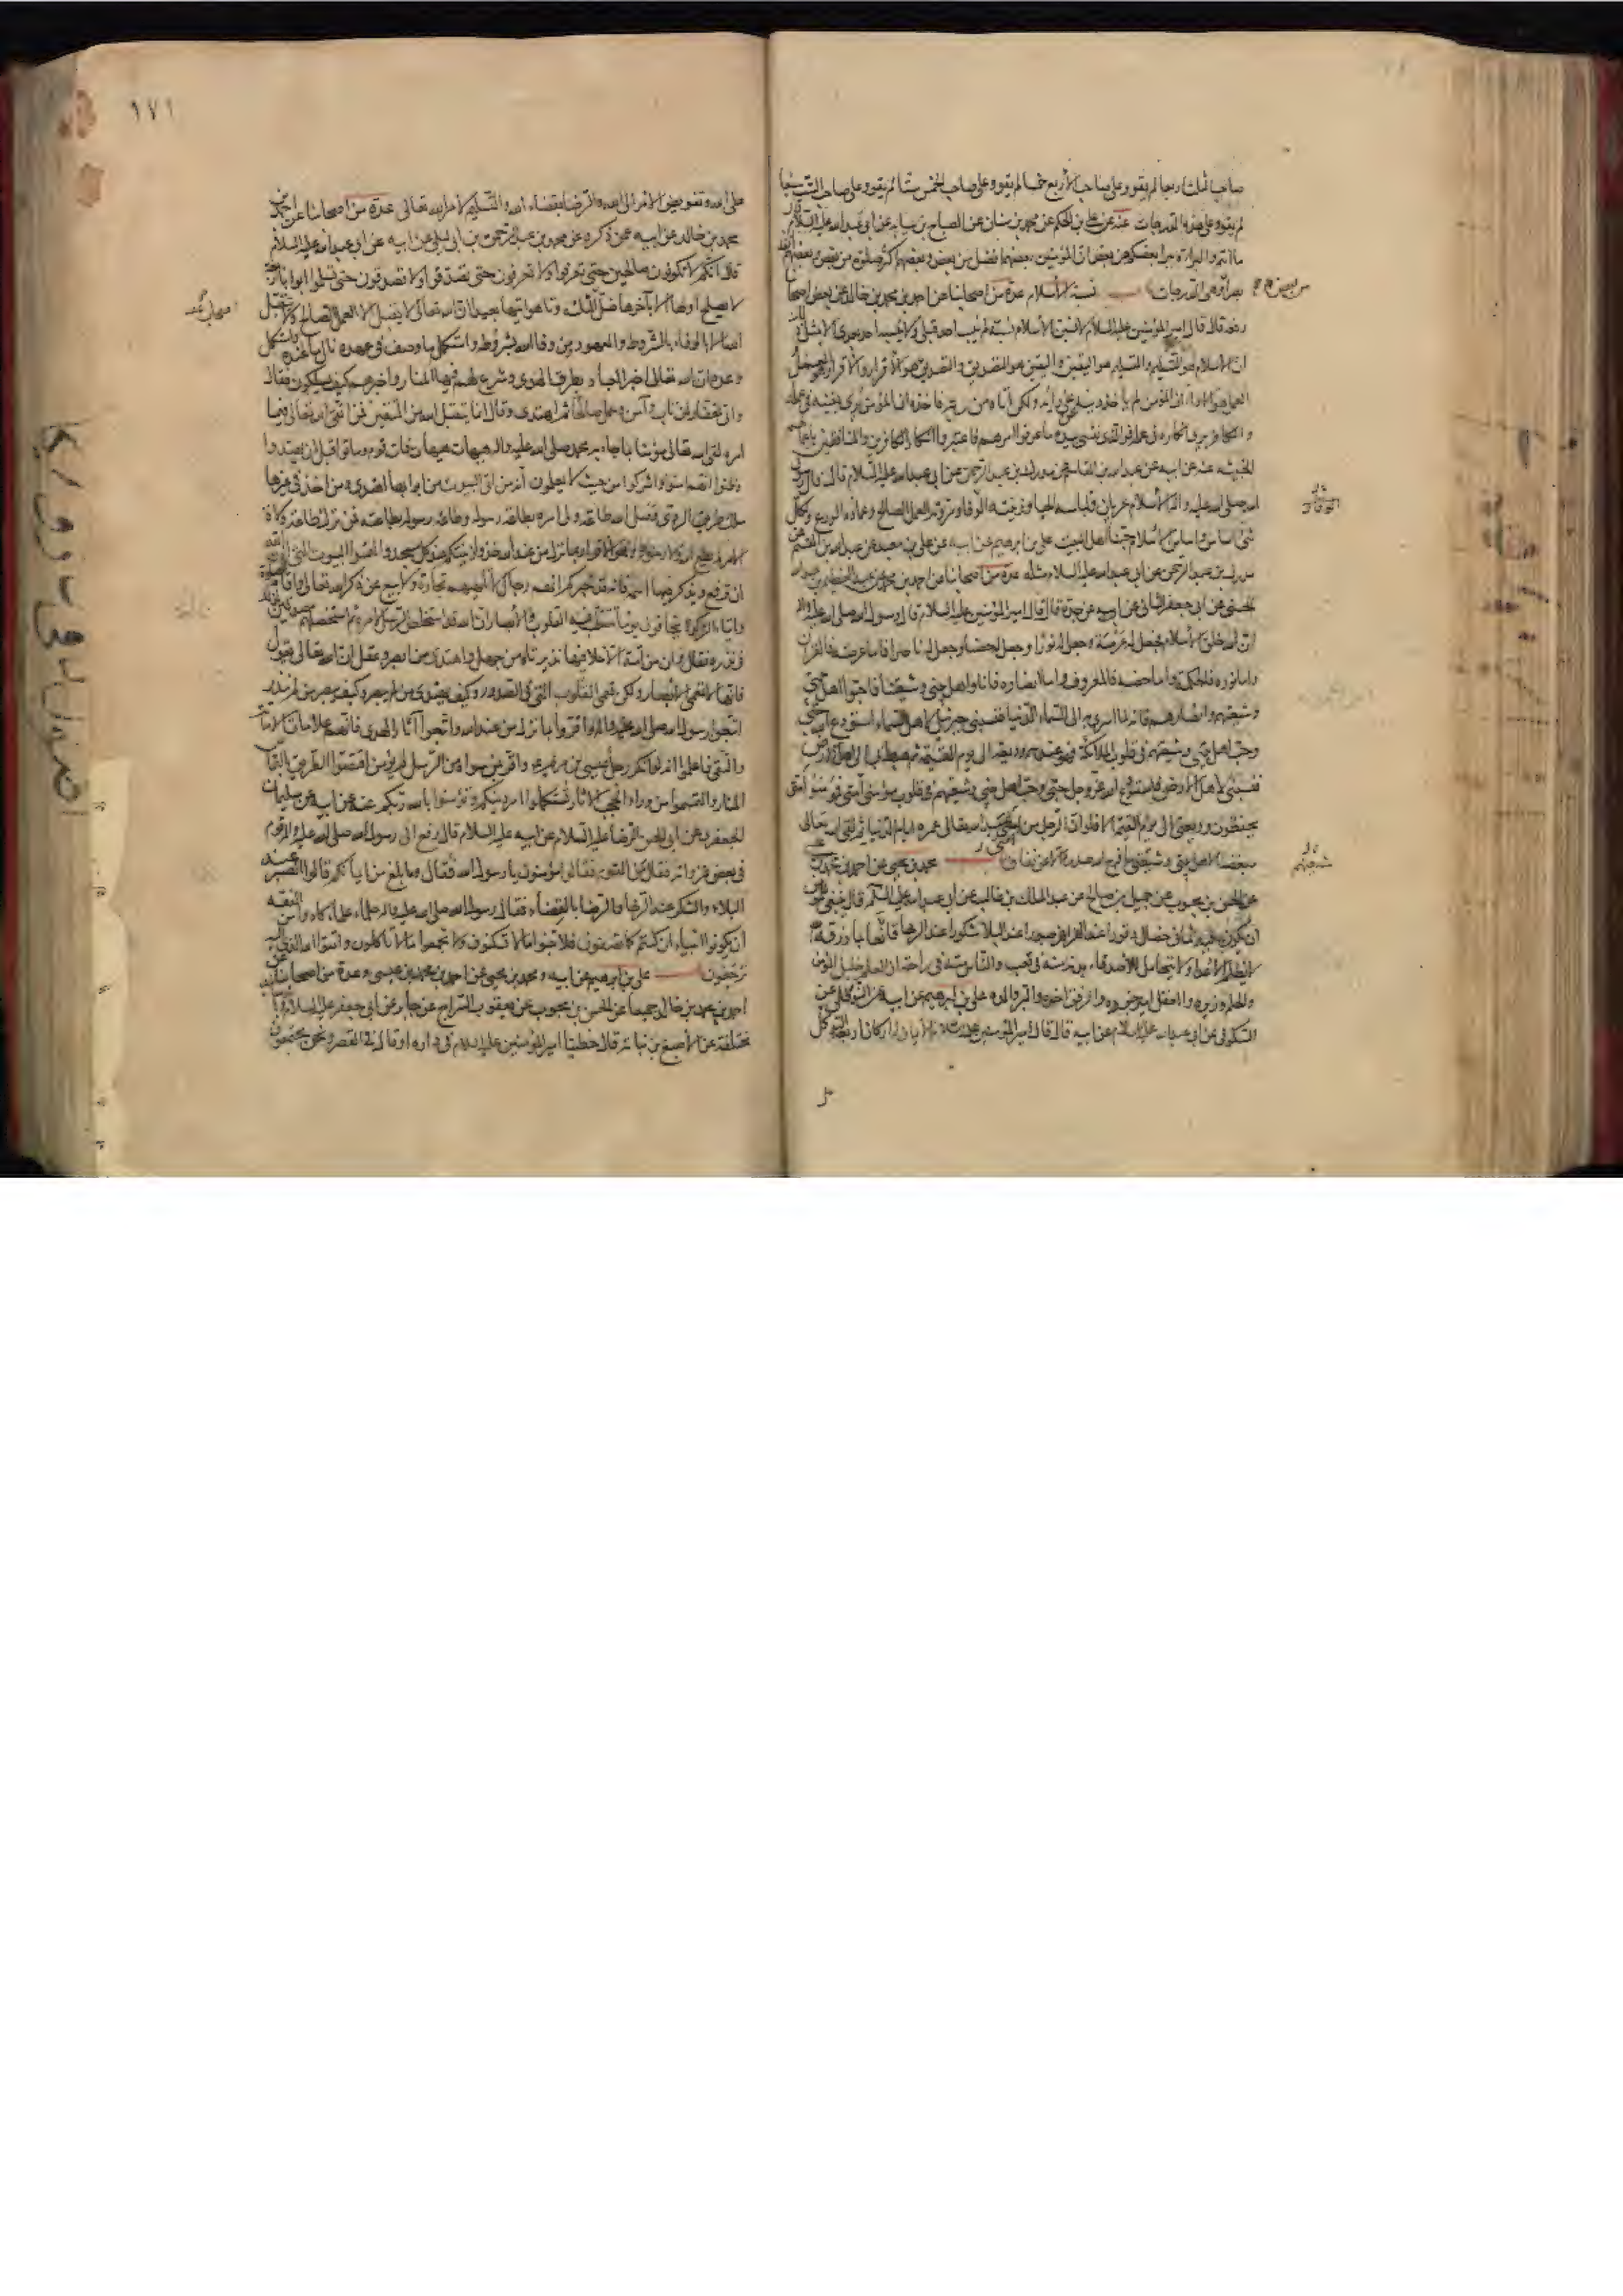 صاحب الثلث اربعا لم يقو وعلى صاحب الأربع خمسا لم يقو وعلى صاحب الخمس ستا لم يقو وعلى صاحب الست سبعا
لم يقو وعلى هذه الدرجات عنه عن علي بن الحكم عن محمد بن سنان عن الصباح بن سيابه عن ابي عبد الله عليه السلام قال
ما انتم والبراءة يبرأ بعضكم من بعض ان المؤمنين بعضهم افضل من بعض وبعضهم اكثر صلوة من بعض وبعضهم انفذ
بصرا وهي الدرجات نسبة الأسلام عدة من اصحابنا عن احمد بن محمد بن خالد عن بعض اصحابنا
رفعه قال قال امير المؤمنين عليه السلام لانسبن الأسلام نسبة لم ينسب احد قبلي ولا ينسبه احد بعدي الا بمثل ذلك
ان الاسلام هو التسليم والتسليم هو اليقين واليقين هو التصديق والتصديق هو الاقرار والاقرار هو العمل
العمل هو الاداء ان المؤمن لم ياخذ دينه عن رأيه ولكن اتاه من ربه فاخذه ان المؤمن يرى يقينه في عمله
والكافر يرى انكاره في عمله فوالذي نفسي بيده ما عرفوا امرهم فاعتبروا انكار الكافرين والمنافقين باعمالهم
الخبيثه عنه عن ابيه عن عبد الله بن القاسم عن مدرك بن عبد الرحمن عن ابي عبد الله عليه السلام قال قال رسول
الله صلى الله عليه واله الأسلام عريان فلباسه الحياء وزينته الوفاء ومروته العمل الصالح وعماده الورع ولكل
شئ اساس واساس الأسلام حبنا اهل البيت علي بن ابرهيم عن ابيه عن علي بن معبد عن عبد الله بن القسم عن
مدرك بن عبد الرحمن عن ابي عبد الله عليه السلام مثله عدة من اصحابنا عن احمد بن محمد عن عبد العظيم بن عبد الله
الحسني عن ابي جعفر الثاني عن ابيه عن جده قال قال امير المؤمنين عليه السلام قال رسول الله صلى الله عليه واله
ان الله خلق الأسلام فجعل له عرصة وجعل له نورا وجعل له حصنا وجعل له ناصرا فاما عرصته فالقران
واما نوره فالحكمة واما حصنه فالمعروف واما انصاره فانا واهل بيتي وشيعتنا فاحبوا اهل بيتي
وشيعتهم وانصارهم فانه لما اسري بي الى السماء الدنيا فنسبني جبرئيل لاهل السماء استودع الله حبي
وحب اهل بيتي وشيعتهم في قلوب الملائكة فهو عندهم وديعة الى يوم القيمة ثم هبط بي الى اهل الارض
فنسبني لاهل الارض فاستودع الله عز وجل حبي وحب اهل بيتي وشيعتهم في قلوب مؤمني امتي فمؤمنوا امتي
يحفظون وديعتي الى يوم القيمة الا فلو ان الرجل من امتي عبد الله تعالى عمره ايام الدنيا ثم لقي الله تعالى
مبغضا لاهل بيتي وشيعتي ما فرج الله صدره الا عن نفاق محمد بن يحيى عن احمد بن محمد بن عيسى
عن الحسن بن محبوب عن جميل بن صالح عن عبد الملك بن غالب عن ابي عبد الله عليه السلام قال ينبغي للمؤمن
ان يكون فيه ثماني خصال وقورا عند الهزاهز صبورا عند البلاء شكورا عند الرخاء قانعا بما رزقه الله
لا يظلم الأعداء ولا يتحامل للأصدقاء بدنه منه في تعب والناس منه في راحة ان العلم خليل المؤمن
والحلم وزيره والعقل امير جنوده والرفق اخوه والبر والده علي بن ابرهيم عن ابيه عن النوفلي عن
السكوني عن ابي عبد الله عليه السلام عن ابيه قال قال امير المؤمنين عليه السلام الأيمان له اركان اربعة التوكل
من بعض
نل
الوقار
شيعتهم
١٧١
على الله وتفويض الأمر الى الله والرضا بقضاء الله والتسليم لأمر الله تعالى عدة من اصحابنا عن احمد بن
محمد بن خالد عن ابيه عمن ذكره عن محمد بن عبد الرحمن بن ابي ليلى عن ابيه عن ابي عبد الله عليه السلام
قال انكم لا تكونون صالحين حتى تعرفوا ولا تعرفون حتى تصدقوا ولا تصدقون حتى تسلموا ابوابا اربعة
لا يصلح اولها الا باخرها ضل اصحاب الثلثة وتاهوا تيها بعيدا ان الله تعالى لا يقبل الا العمل الصالح ولا يتقبل
الله الا بالوفاء بالشروط والعهود ومن وفى الله بشروطه واستكمل ما وصف في عهده نال ما عنده واستكمل
وعده ان الله تعالى اخبر العباد بطرق الهدى وشرع لهم فيها المنار واخبرهم كيف يسلكون فقال
واني لغفار لمن تاب وآمن وعمل صالحا ثم اهتدى وقال انما يتقبل الله من المتقين فمن اتقى الله تعالى فيما
امره لقي الله تعالى مؤمنا بما جاء به محمد صلى الله عليه واله هيهات هيهات فات قوم وماتوا قبل ان يهتدوا
وظنوا انهم امنوا واشركوا من حيث لا يعلمون انه من اتى البيوت من ابوابها اهتدى ومن اخذ في غيرها
سلك طريق الردى وصل الله طاعة ولي امره بطاعة رسوله وطاعة رسوله بطاعته فمن ترك طاعة ولاة
الامر لم يطع الله ولا رسوله وهو الاقرار بما نزل من عند الله خذوا زينتكم عند كل مسجد والتمسوا البيوت التي اذن الله
ان ترفع ويذكر فيها اسمه فانه قد خبركم انهم رجال لا تلهيهم تجارة ولا بيع عن ذكر الله تعالى واقام الصلوة
وايتاء الزكوة يخافون يوما تتقلب فيه القلوب والأبصار ان الله قد استخلص الرسل لأمره ثم استخلصهم مصدقين لذلك
في نذره فقال وان من امة الا خلا فيها نذير تاه من جهل واهتدى من ابصر وعقل ان الله تعالى يقول
فانها لا تعمى الأبصار ولكن تعمى القلوب التي في الصدور وكيف يهتدي من لم يبصر وكيف يبصر من لم ينذر
اتبعوا رسول الله صلى الله عليه واله واقروا بما نزل من عند الله واتبعوا آثار الهدى فانهم علامات الأمانة
والتقى واعلموا انه لو انكر رجل عيسى بن مريم واقر بمن سواه من الرسل لم يؤمن اقتصوا الطريق بالتماس
المنار والتمسوا من وراء الحجب الاثار تستكملوا امر دينكم وتؤمنوا بالله ربكم عنه عن ابيه عن سليمان
الجعفري عن ابي الحسن الرضا عليه السلام عن ابيه عليه السلام قال رفع الى رسول الله صلى الله عليه واله قوم
في بعض غزواته فقال من القوم فقالوا مؤمنون يا رسول الله فقال وما بلغ من ايمانكم قالوا الصبر عند
البلاء والشكر عند الرخاء والرضا بالقضاء فقال رسول الله صلى الله عليه واله حلماء علماء كادوا من الفقه
ان يكونوا انبياء ان كنتم كما تصفون فلا تبنوا ما لا تسكنون ولا تجمعوا ما لا تاكلون واتقوا الله الذي اليه
ترجعون علي بن ابرهيم عن ابيه ومحمد بن يحيى عن احمد بن محمد بن عيسى وعدة من اصحابنا عن
احمد بن محمد بن خالد جميعا عن الحسن بن محبوب عن يعقوب السراج عن جابر عن ابي جعفر عليه السلام
مختلفة عن الأصبغ بن نباته قال خطبنا امير المؤمنين عليه السلام في داره او قال في القصر ونحن مجتمعون